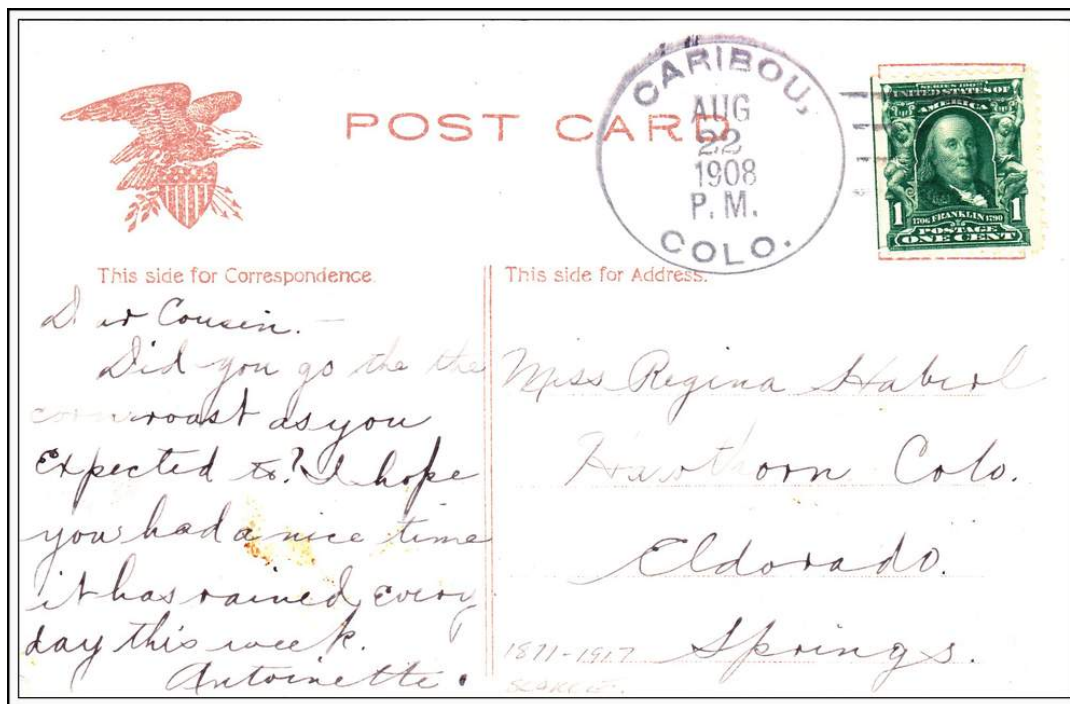 POST CARD
CARIBOU,
AUG
22
1908
P. M.
COLO.
SERIES 1902
UNITED STATES OF
AMERICA
1 1706 FRANKLIN 1790 1
POSTAGE
ONE CENT
This side for Correspondence.
D ar Cousin. –
Did you go the the
corn roast as you
Expected to? I hope
you had a nice time
it has rained, every
day this week.
Antoinette.
This side for Address.
Miss Regina Haberl
Hawthorn Colo.
Eldorado.
Springs.
1871-1917